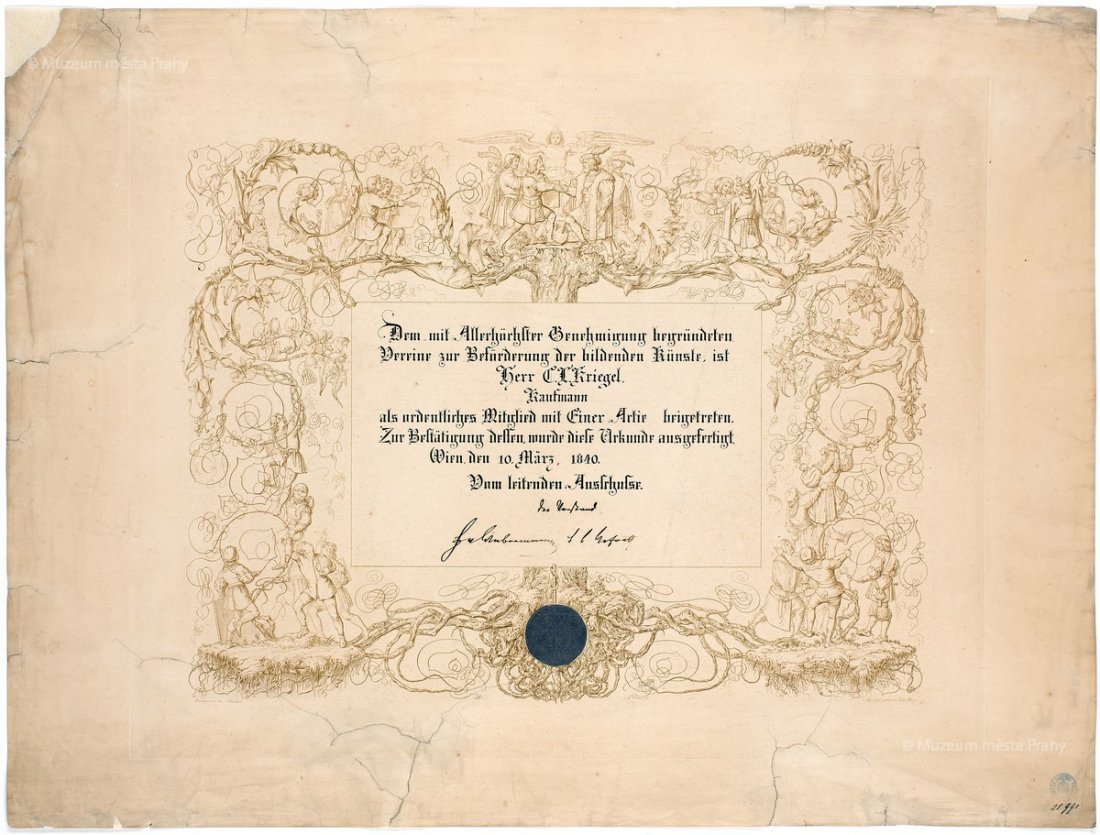 © Muzeum města Prahy
Dem mit Allerhöchster Genehmigung begründeten
Vereine zur Beförderung der bildenden Künste, ist
Herr C L Kriegel.
Kaufmann
als ordentliches Mitglied mit Einer Actie beigetreten.
Zur Bestätigung dessen, wurde diese Urkunde ausgefertigt.
Wien, den 10. März, 1840.
Vom leitenden Ausschusse.
der Vorstand
© Muzeum města Prahy